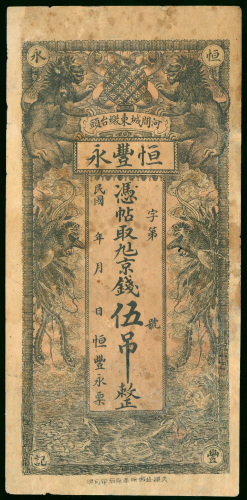 恒
永
河間城東台頭
恒豐永
字第 號
憑帖取京錢伍吊整
民國 年 月 日 恒豐永票
豐
記